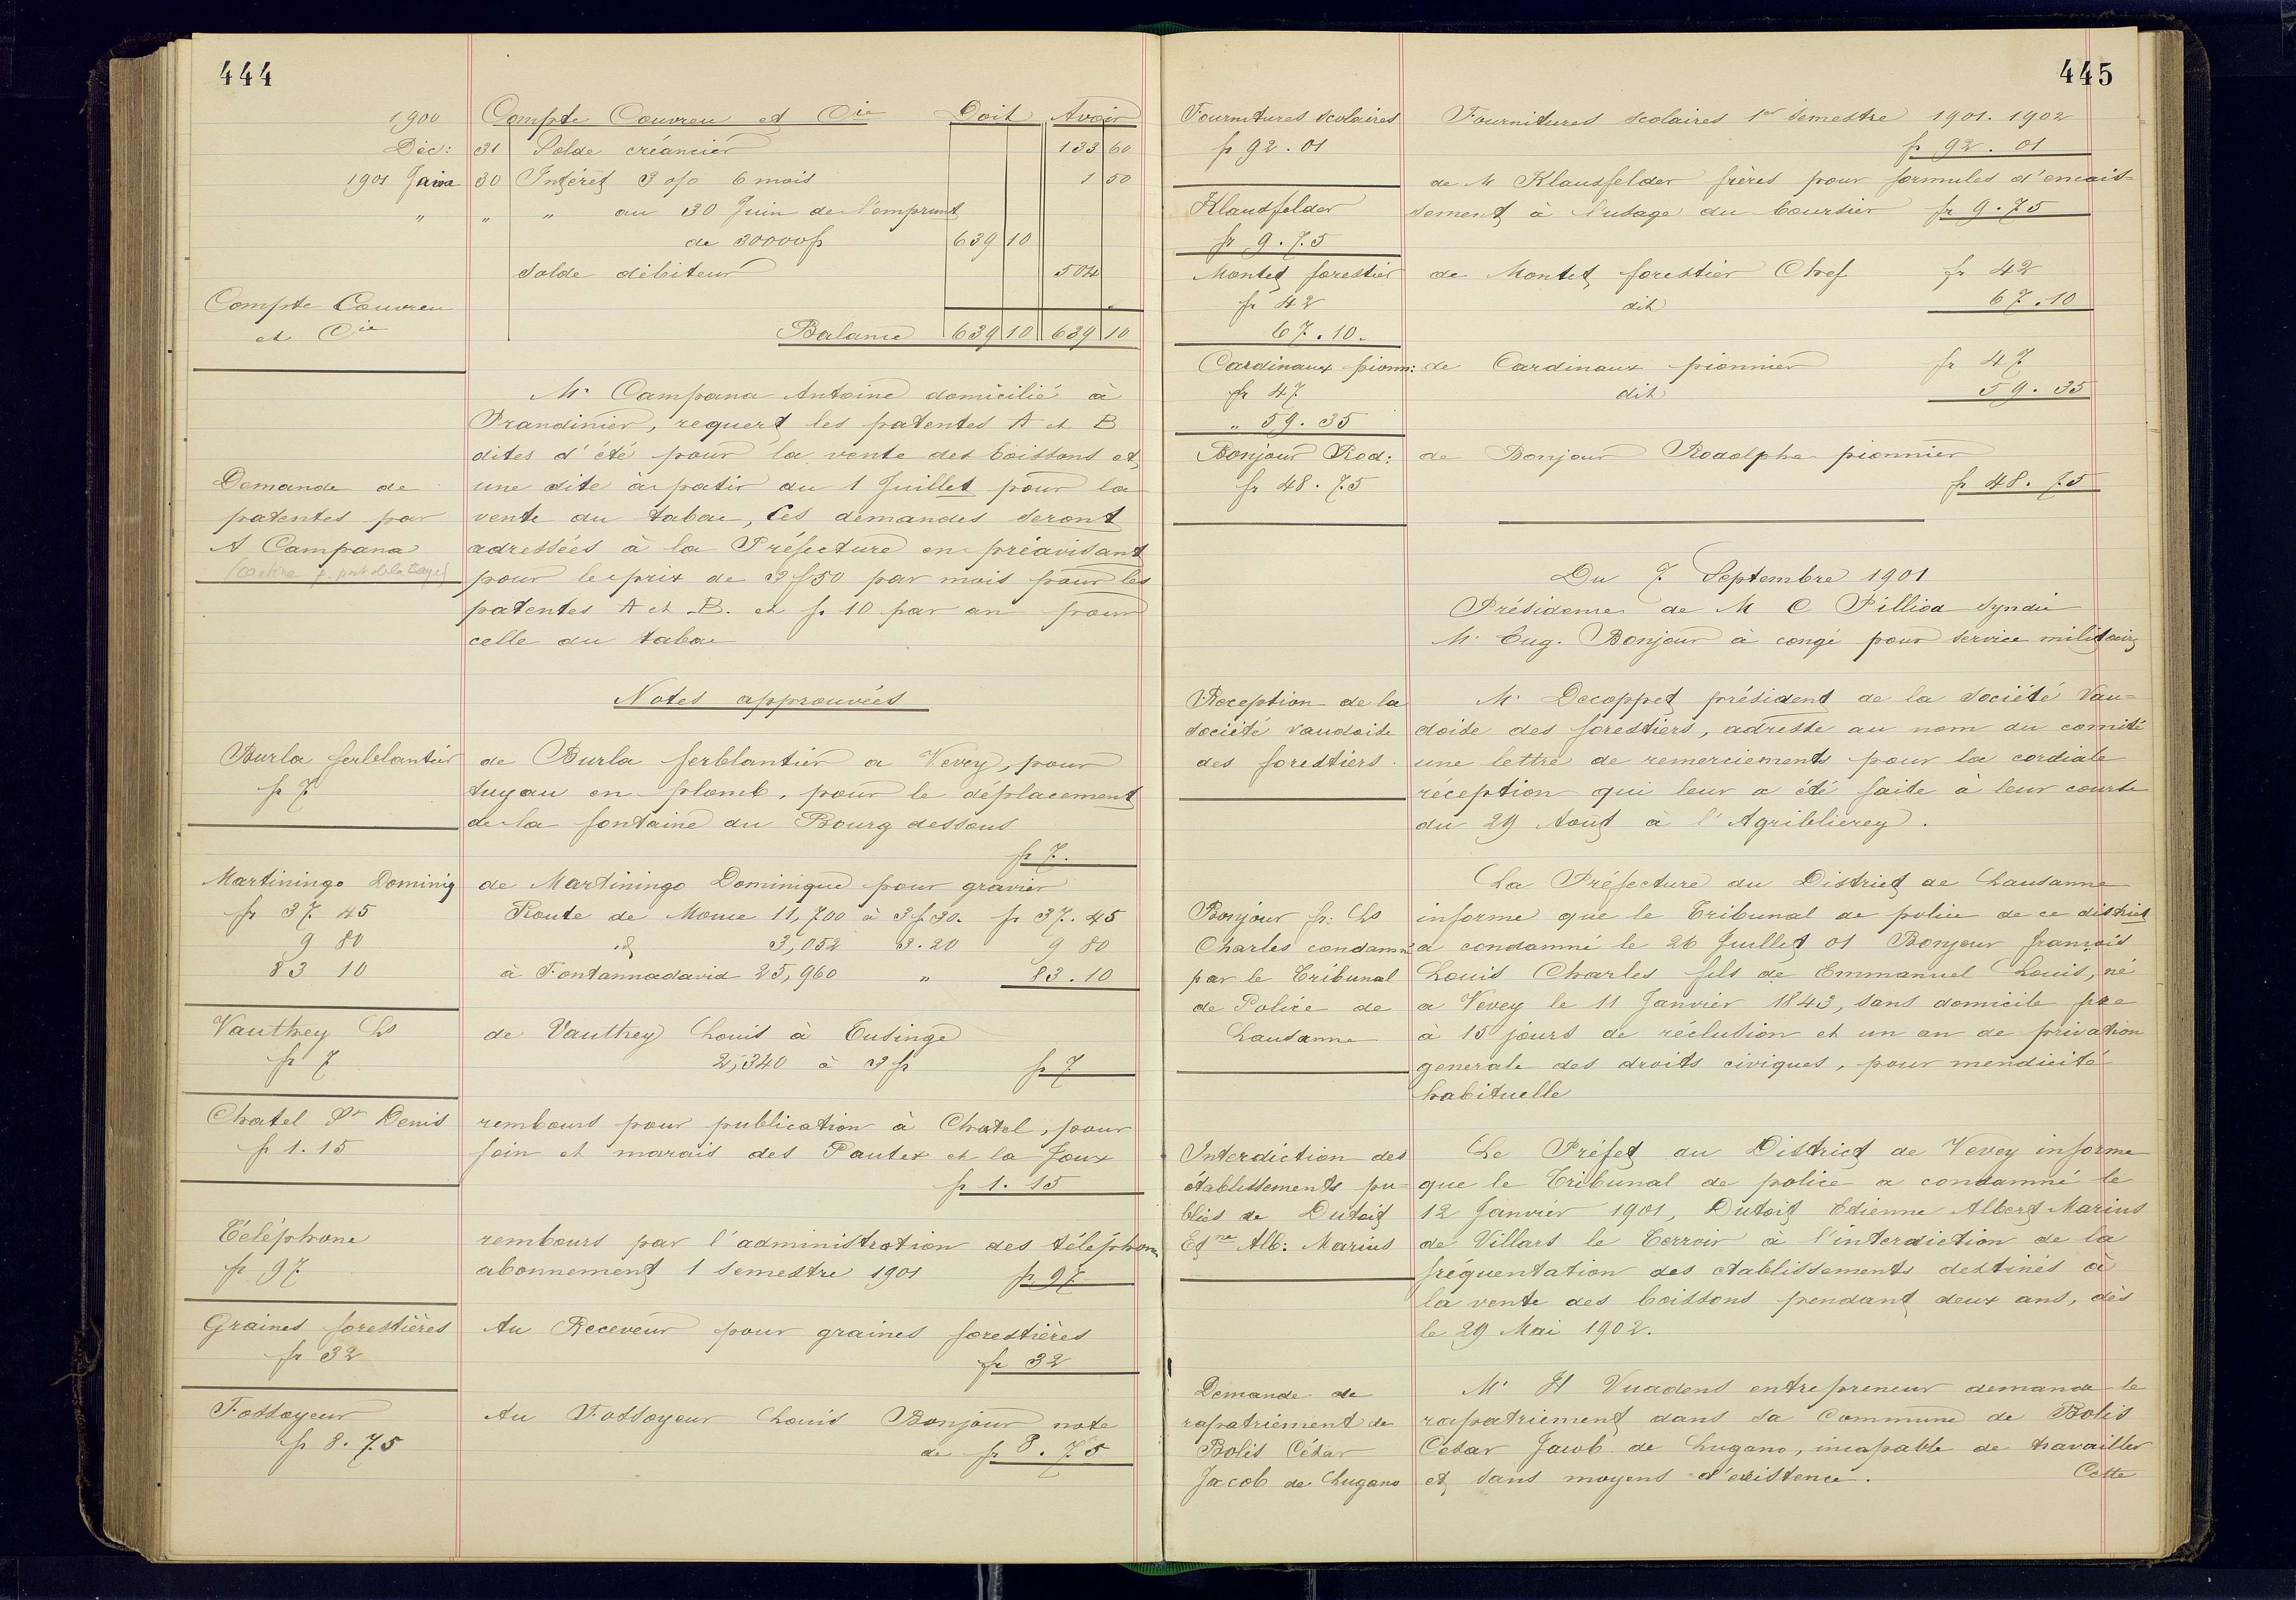 444
1900 Compte Couvreu et Cie Doit Avoir
Déc: 31 Solde créancier 133 60
1901 30 Intéret 3 o/o 6 mois 1 50
" " " au 30 Juin de l'emprunt
de 30000 fr 639 10
Solde débiteur 504
Compte Couvreu
et Cie
Balance 639 10 639 10
Mr Campana Antoine domicilié à
Prandinier, requert les patentes A et B
dites d'été pour la vente des boissons et
Demande de
patentes par
A Campana
une dite à patir du 1 Juillet pour la
vente du tabac, Ces demandes seront
adressées à la Préfecture en préavisant
pour le prix de 3 f 50 par mois pour les
patentes A et B. et fr 10 par an pour
celle du tabac
Notes approuvées
Burla ferblantier
fr 7
de Burla ferblantier a Vevey, pour
tuyau en plomb, pour le déplacement
de la fontaine du Bourg dessous
fr 7.
Martiningo Dominiq
fr 37 45
9 80
83 10
de Martiningo Dominique pour gravier
Route de 11,700 à 3 f 20. fr 37.45
id 3,052 3.20 9 80
à Fontannadavid 25,960 " 83.10
Vauthey Ls
fr 7
de Vauthey Louis à
2,340 à 3 fr fr 7
Chatel St Denis
fr 1.15
rembours pour publication à Chatel, pour
foin et marais des Pautex et la Joux
fr 1.15
Téléphone
fr 97
rembours par l'administration des téléphones
abonnement 1 semestre 1901 fr 97
Graines forestières
fr 32
Au Receveur pour graines forestières
fr 32
Fossoyeur
fr 8.75
Au Fossoyeur Louis Bonjour note
de fr 8.75
445
Fournitures scolaires
fr 92.01
Fournitures scolaires 1er semestre 1901.1902
fr 92.01
Klausfelder
fr 9.75
de M Klausfelder frères pour formules d'encais=
sement à l'usage du boursier fr 9.75
Montet forestier
fr 42
67.10.
de Montet forestier Chef fr 42
dit 67.10
Cardinaux pionn:
fr 47
" 59.35
de Cardinaux pionnier fr 47
dit 59.35
Bonjour Rod:
fr 48.75
de Bonjour Rodolphe pionnier
fr 48.75
Du 7 Septembre 1901
Présidence de M C Pilliod Syndic
Mr Eug. Bonjour à congé pour service militaire
Réception de la
société vaudoise
des forestiers.
Mr Decoppet président de la Société Vau=
doise des forestiers, adresse au nom du comité
une lettre de remerciements pour la cordiale
réception qui leur a été faite à leur course
du 29 Aout à l'Agriblierey.
Bonjour fr: Ls
Charles condamné
par le Tribunal
de Police de
Lausanne
La Préfecture du District de Lausanne
informe que le Tribunal de police de ce district
a condamné le 26 Juillet 01 Bonjour françois
Louis Charles fils de Emmanuel Louis, né
a Vevey le 11 Janvier 1843, sans domicile fixe
à 15 jours de réclusion et un an de privation
generale des droits civiques, pour mendicité
habituelle
Interdiction des
établissements pu=
blics de Dutoit
Etne Alb: Marius
Le Préfet du District de Vevey informe
que le Tribunal de police a condamné le
12 Janvier 1901, Dutoit Etienne Albert Marius
de Villars le Terroir à l'interdiction de la
fréquentation des établissements destinés à
la vente des boissons pendant deux ans, dès
le 29 Mai 1902.
Demande de
rapatriement de
Bolis César
Jacob de Lugano
Mr H Vuadens entrepreneur demande le
rapatriement dans sa Commune de Bolis
César Jacob de Lugano, incapable de travailler
et sans moyens d'existence. Cette